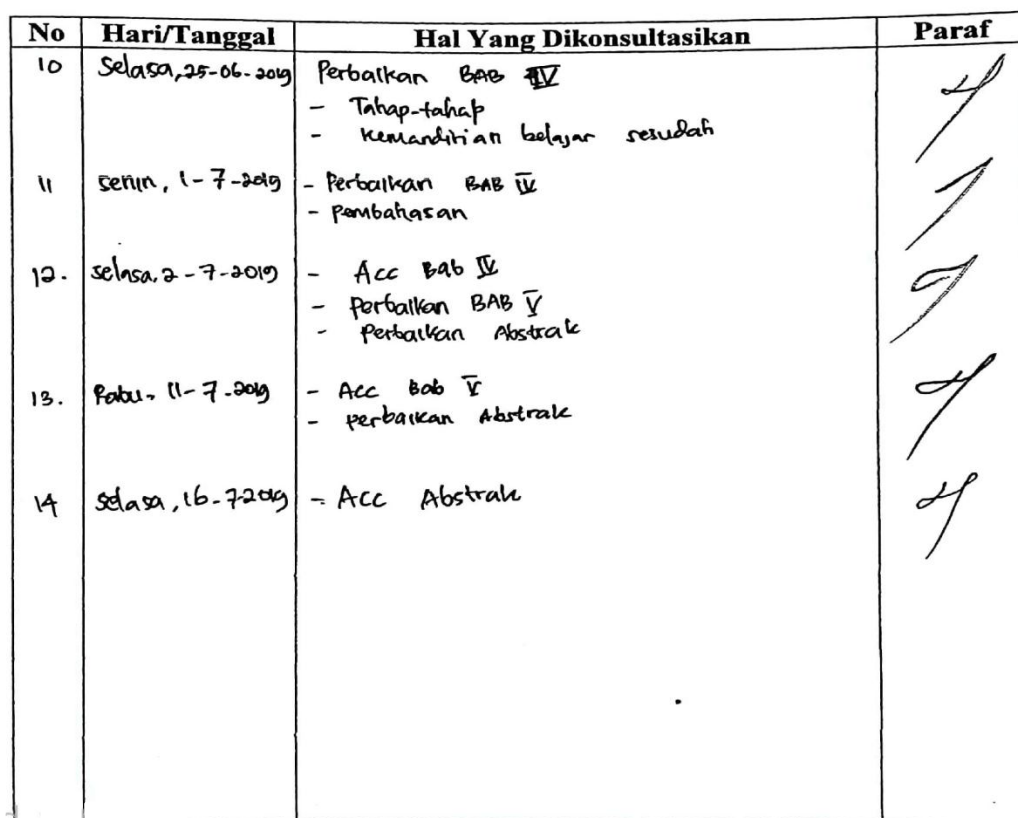 No Hari/Tanggal Hal Yang Dikonsultasikan Paraf
10 Selasa, 25-06-2019 Perbaikan BAB IV
- Tahap-tahap
- Kemandirian belajar sesudah
11 Senin, 1-7-2019 - Perbaikan BAB IV
- Pembahasan
12. Selasa, 2-7-2019 - Acc Bab IV
- Perbaikan BAB V
- Perbaikan Abstrak
13. Rabu, 11-7-2019 - Acc Bab V
- perbaikan Abstrak
14 Selasa, 16-7-2019 - Acc Abstrak